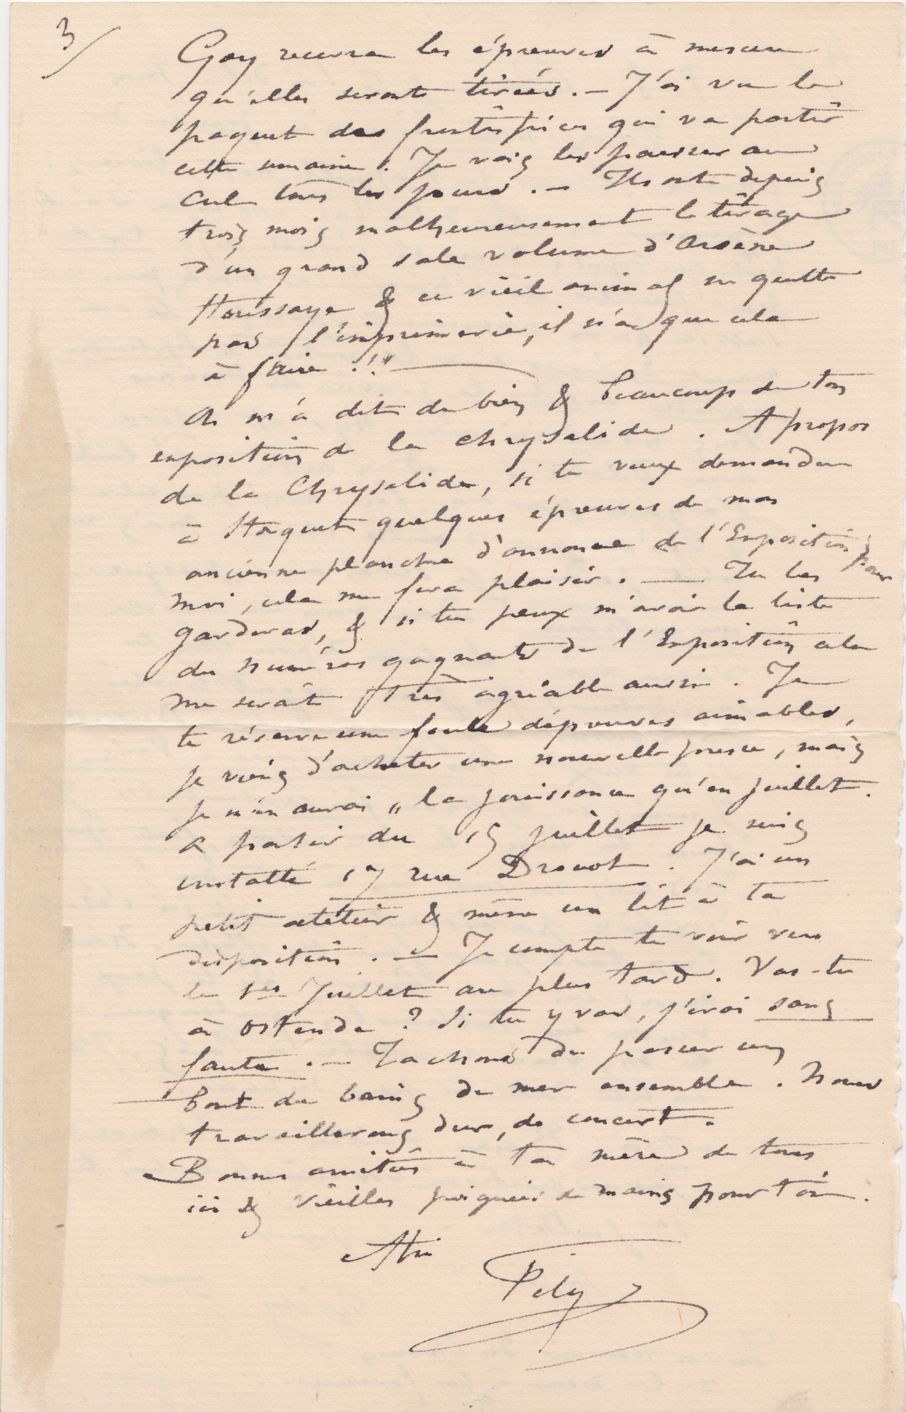 3/
Gay recevra les épreuves à mesure
qu'elles seront tirées. — J'ai vu le
paquet des frontispices qui va partir
cette semaine. Je vais les pousser au
cul tous les jours. — Ils ont depuis
trois mois malheureusement le tirage
d'un grand sale volume d'Arsène
Houssaye & ce vieil animal ne quitte
pas l'imprimerie, il n'a que cela
à faire !!"
On m'a dit du bien & beaucoup de ton
exposition de la Chrysalide. A propos
de la Chrysalide, si tu veux demander
à Hoquet quelques épreuves de mon
ancienne planche d'annonce de l'Exposition pour
moi, cela me fera plaisir. — Tu les
garderas, & si tu peux m'avoir la liste
des numéros gagnants de l'Exposition cela
me serait très agréable aussi. Je
te réserve une foule d'épreuves aimables,
je viens d'acheter une nouvelle presse, mais
je n'en aurai „ la jouissance qu'en juillet.
a partir du 15 juillet je suis
installé 17 rue Drouot. J'ai un
petit atelier & même un lit à ta
disposition. — Je compte te voir vers
le 1er Juillet au plus tard. Vas-tu
à Ostende ? Si tu y vas, j'irai sans
faute. — Tachons de passer un
bout de bains de mer ensemble. Nous
travaillerons dur, de concert.
Bonnes amitiés à ta mère de tous
ici & vieilles poignées de mains pour toi.
Fély